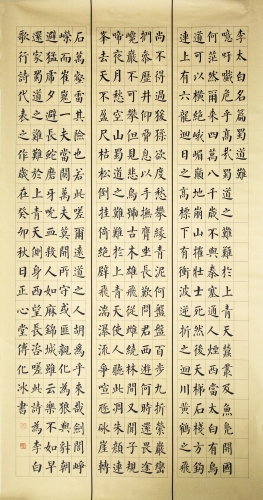 李太白名篇蜀道難
噫吁嚱危乎高哉蜀道之難難於上青天蠶叢及魚鳧開國
何茫然爾來四萬八千歲不與秦塞通人煙西當太白有鳥
道可以橫絕峨嵋巔地崩山摧壯士死然後天梯石棧方鉤
連上有六龍迴日之高標下有衝波逆折之迴川黃鶴之飛
尚不得過猿猱欲度愁攀緣青泥何盤盤百步九折縈巖巒
捫參歷井仰脅息以手撫膺坐長歎問君西遊何時還畏途巉
巖不可攀但見悲鳥號古木雄飛雌從繞林間又聞子規
啼夜月愁空山蜀道之難難於上青天使人聽此凋朱顏連
峯去天不盈尺枯松倒挂倚絕壁飛湍瀑流爭喧豗砯崖轉
石萬壑雷其險也若此嗟爾遠道之人胡為乎來哉劍閣崢
嶸而崔嵬一夫當關萬夫莫開所守或匪親化為狼與豺朝
避猛虎夕避長蛇磨牙吮血殺人如麻錦城雖云樂不如早
還家蜀道之難難於上青天側身西望長咨嗟此詩為李白
歌行詩代表之作歲在癸卯秋日正心堂傳化冰書